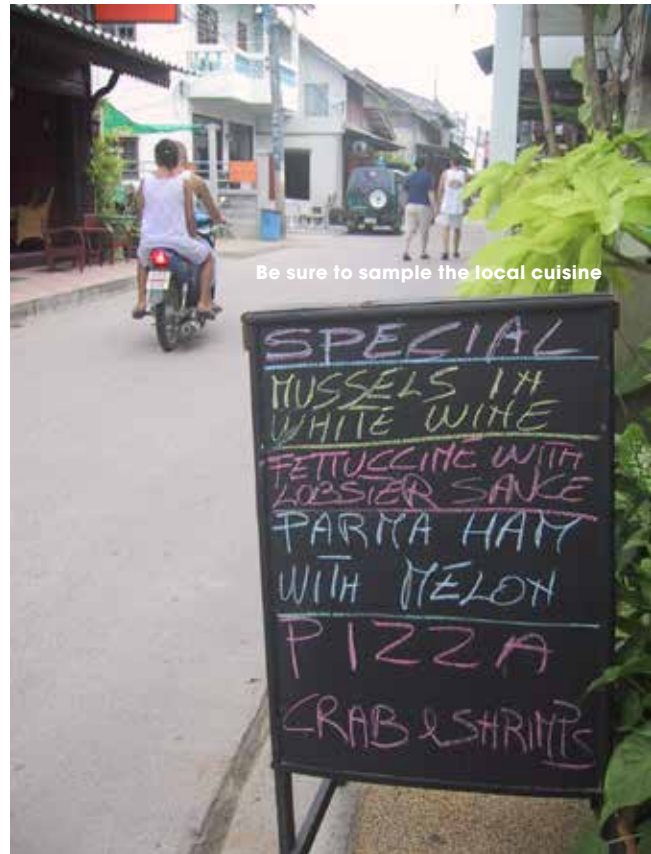 Be sure to sample the local cuisine
SPECIAL
MUSSELS IN
WHITE WINE
FETTUCCINE WITH
LOBSTER SAUCE
PARMA HAM
WITH MELON
PIZZA
CRAB & SHRIMPS